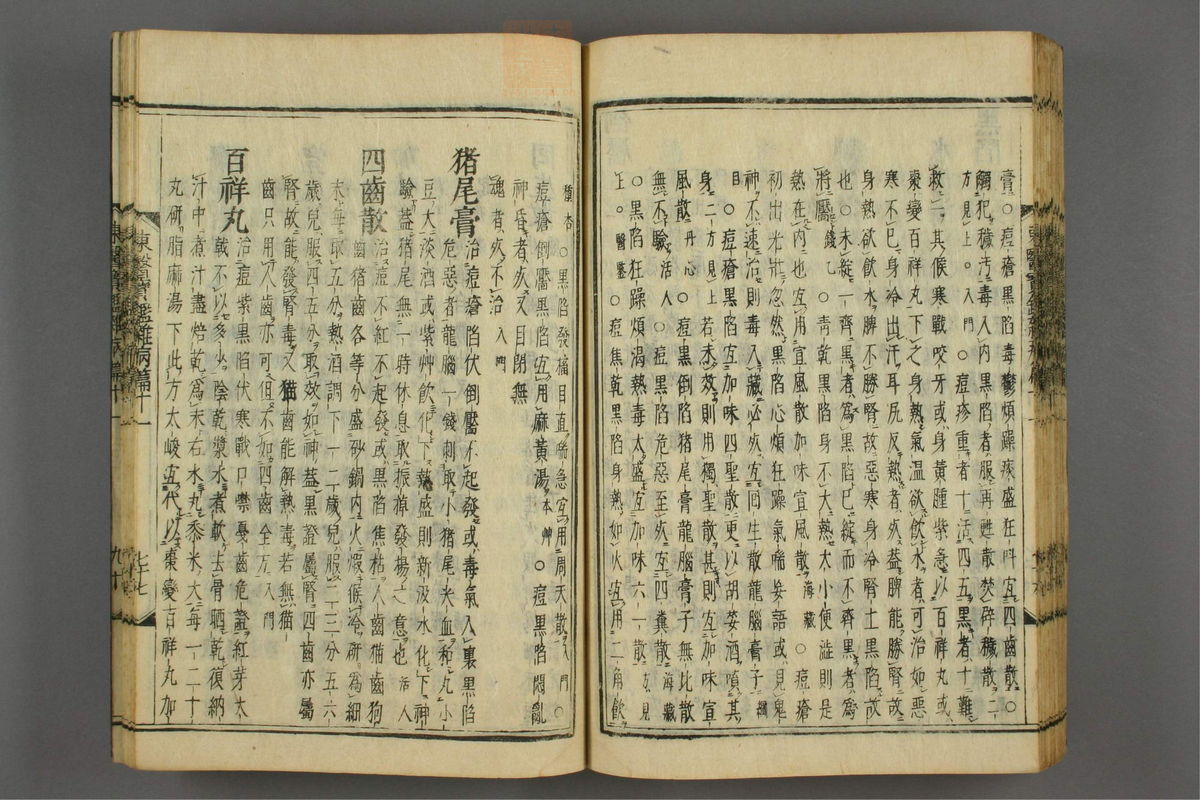 膏○痘瘡黒陷毒鬱煩躁疾盛狂呌宜四齒散○
觸犯穢汚毒入内黒陷者服再甦散焚辟穢散二
方見上入門○痘疹重者十活四五黒者十難
救二其候寒戰咬牙或身黄腫紫急以百祥丸或
棗變百祥丸下之身熱氣温欲飲水者可治如惡
寒不已身冷出汗耳尻反熱者死盖脾能勝腎故
身熱欲飲水脾不勝腎故惡寒身冷腎土黒陷故
也○未綻一齊黒者爲黒陷已綻而不齊黒者爲
將靨錢乙○靑乾黒陷身不大熱大小便澁則是
熱在内也宜用宣風散加味宣風散海藏○痘瘡
初出光壯忽然黒陷心煩狂躁氣喘妄語或見鬼
神不速治則毒入藏必死宜囘生散龍腦膏子綱
目○痘瘡黒陷宜加味四聖散更以胡荽酒噴其
身二方見上若未效則用獨聖散甚則宜加味宣
風散丹心○痘黒倒陷猪尾膏龍腦膏子無比散
無不驗活人○痘黒陷危惡至死宜四糞散海藏
○黒陷狂躁煩渴熱毒太盛宜加味六一散方見
上○醫鑒○痘焦乾黒陷身熱如火宜用二角飮
種杏○黒陷發搐目直喘急宜用周天散入門○
痘瘡倒靨黒陷宜用麻黄湯本艸○痘黒陷悶亂
神昏者死又目閉無
魂者死不治入門
猪尾膏 治痘瘡陷伏倒靨不起發或毒氣入裏黒陷
危惡者龍腦一錢刺取小猪尾尖血和丸小
豆大淡酒或紫艸飮化下熱盛則新汲水化下神
驗蓋猪尾無一時休息取振掉發揚之意也活人
四齒散 治痘不紅不起發或黒陷焦枯人齒猫齒狗
齒猪齒各等分盛砂鍋内火煆候冷研爲細
末每取五分熱酒調下一二歲兒服二三分五六
歲兒服四五分取效如神蓋黒證屬腎四齒亦屬
腎故能發腎毒又猫齒能解熱毒若無猫
齒只用人齒亦可但不如四齒全方入門
百祥丸 治痘紫黒陷伏寒戰口噤憂齒危證紅芽大
戟不以多少陰乾漿水煮軟去骨晒乾復納
汁中煮汁盡焙乾爲末右水丸黍米大每一二十
丸研脂麻湯下此方太峻宜代以棗變百祥丸加
東醫寶鑑雜病篇十一